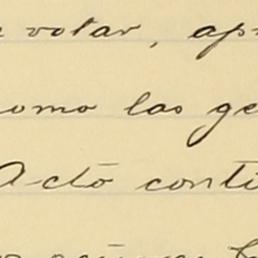 votar, ap
como las ge
Actó conti